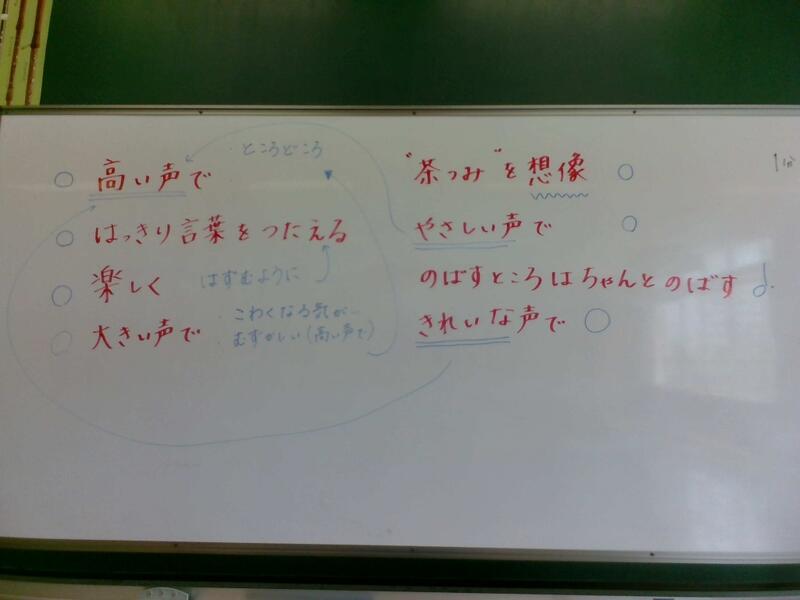 ところどころ
高い声で
はっきり言葉をつたえる
楽しく はずむように
大きい声で
・こわくなる気が…
むずかしい(高い声で)
"茶つみ"を想像
やさしい声で
のばすところはちゃんとのばす
きれいな声で